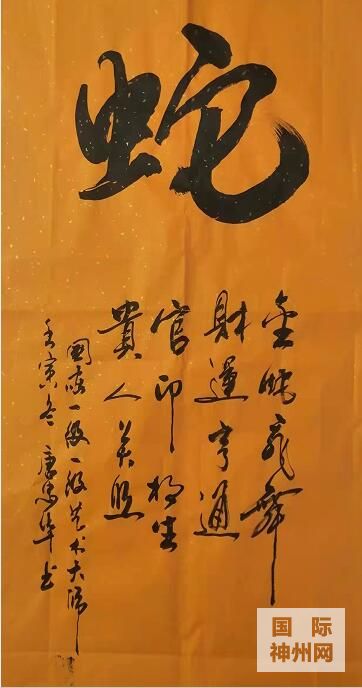 蛇
金蛇飛舞
財運亨通
官印相生
貴人关照
國际一级一级艺术大师
壬寅冬 唐忠华书
国际
神州网